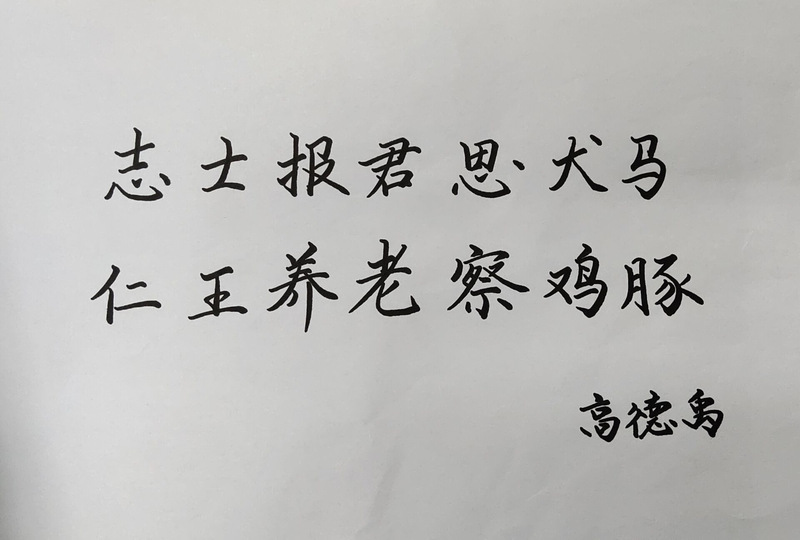 志士报君思犬马
仁王养老察鸡豚
高德禹